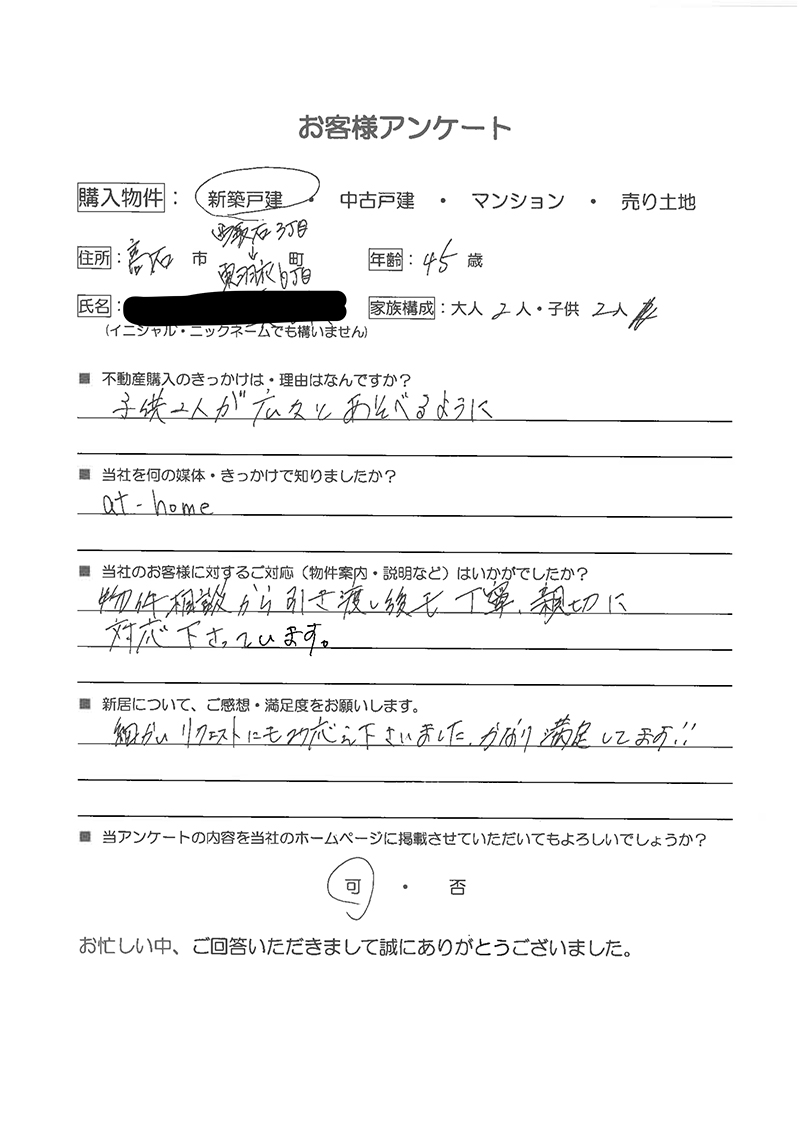 お客様アンケート
購入物件： 新築戸建 ・ 中古戸建 ・ マンション ・ 売り土地
西取石3丁目
↓
住所：高石 市 東羽衣6丁目 町 年齢：45歳
氏名： 家族構成：大人 2人・子供 2人
(イニシャル・ニックネームでも構いません)
■ 不動産購入のきっかけは・理由はなんですか？
子供2人が広々とあそべるように
■ 当社を何の媒体・きっかけで知りましたか？
at-home
■ 当社のお客様に対するご対応（物件案内・説明など）はいかがでしたか？
物件相談から引き渡し後も丁寧、親切に
対応下さっています。
■ 新居について、ご感想・満足度をお願いします。
細かいリクエストにも対応え下さいました、かなり満足してます!!
■ 当アンケートの内容を当社のホームページに掲載させていただいてもよろしいでしょうか？
可 ・ 否
お忙しい中、ご回答いただきまして誠にありがとうございました。